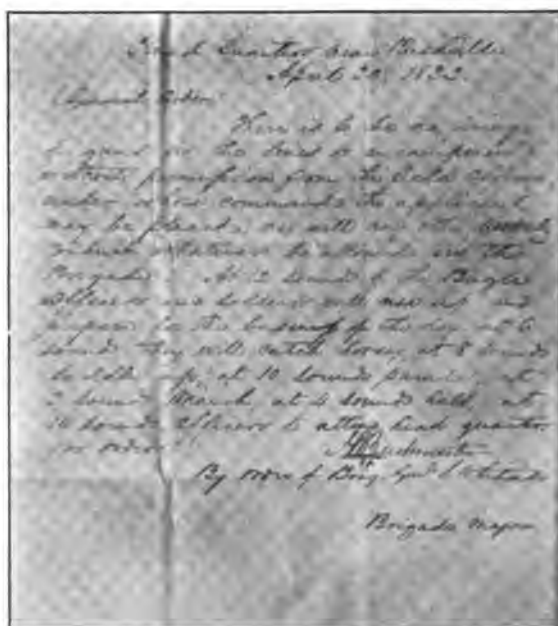 Head Quarters near
April 20, 1832.
General Order
There is to be no
of guns on the lines or encampment
without permission from the
under whose command the applicant
may be placed, nor will any other
whatever be allowed in the
Brigade. At 12 sounds of the Bugle
officers and soldiers will rise up and
prepare for the business of the day, at 6
sounds they will catch horses, at 8 sounds
saddle up, at 10 sounds parade, at
2 sounds March, at 4 sounds halt, at
sounds officers to attend head quarters
for orders.
By order of Brig. Genl. S. Whiteside
Brigade Major